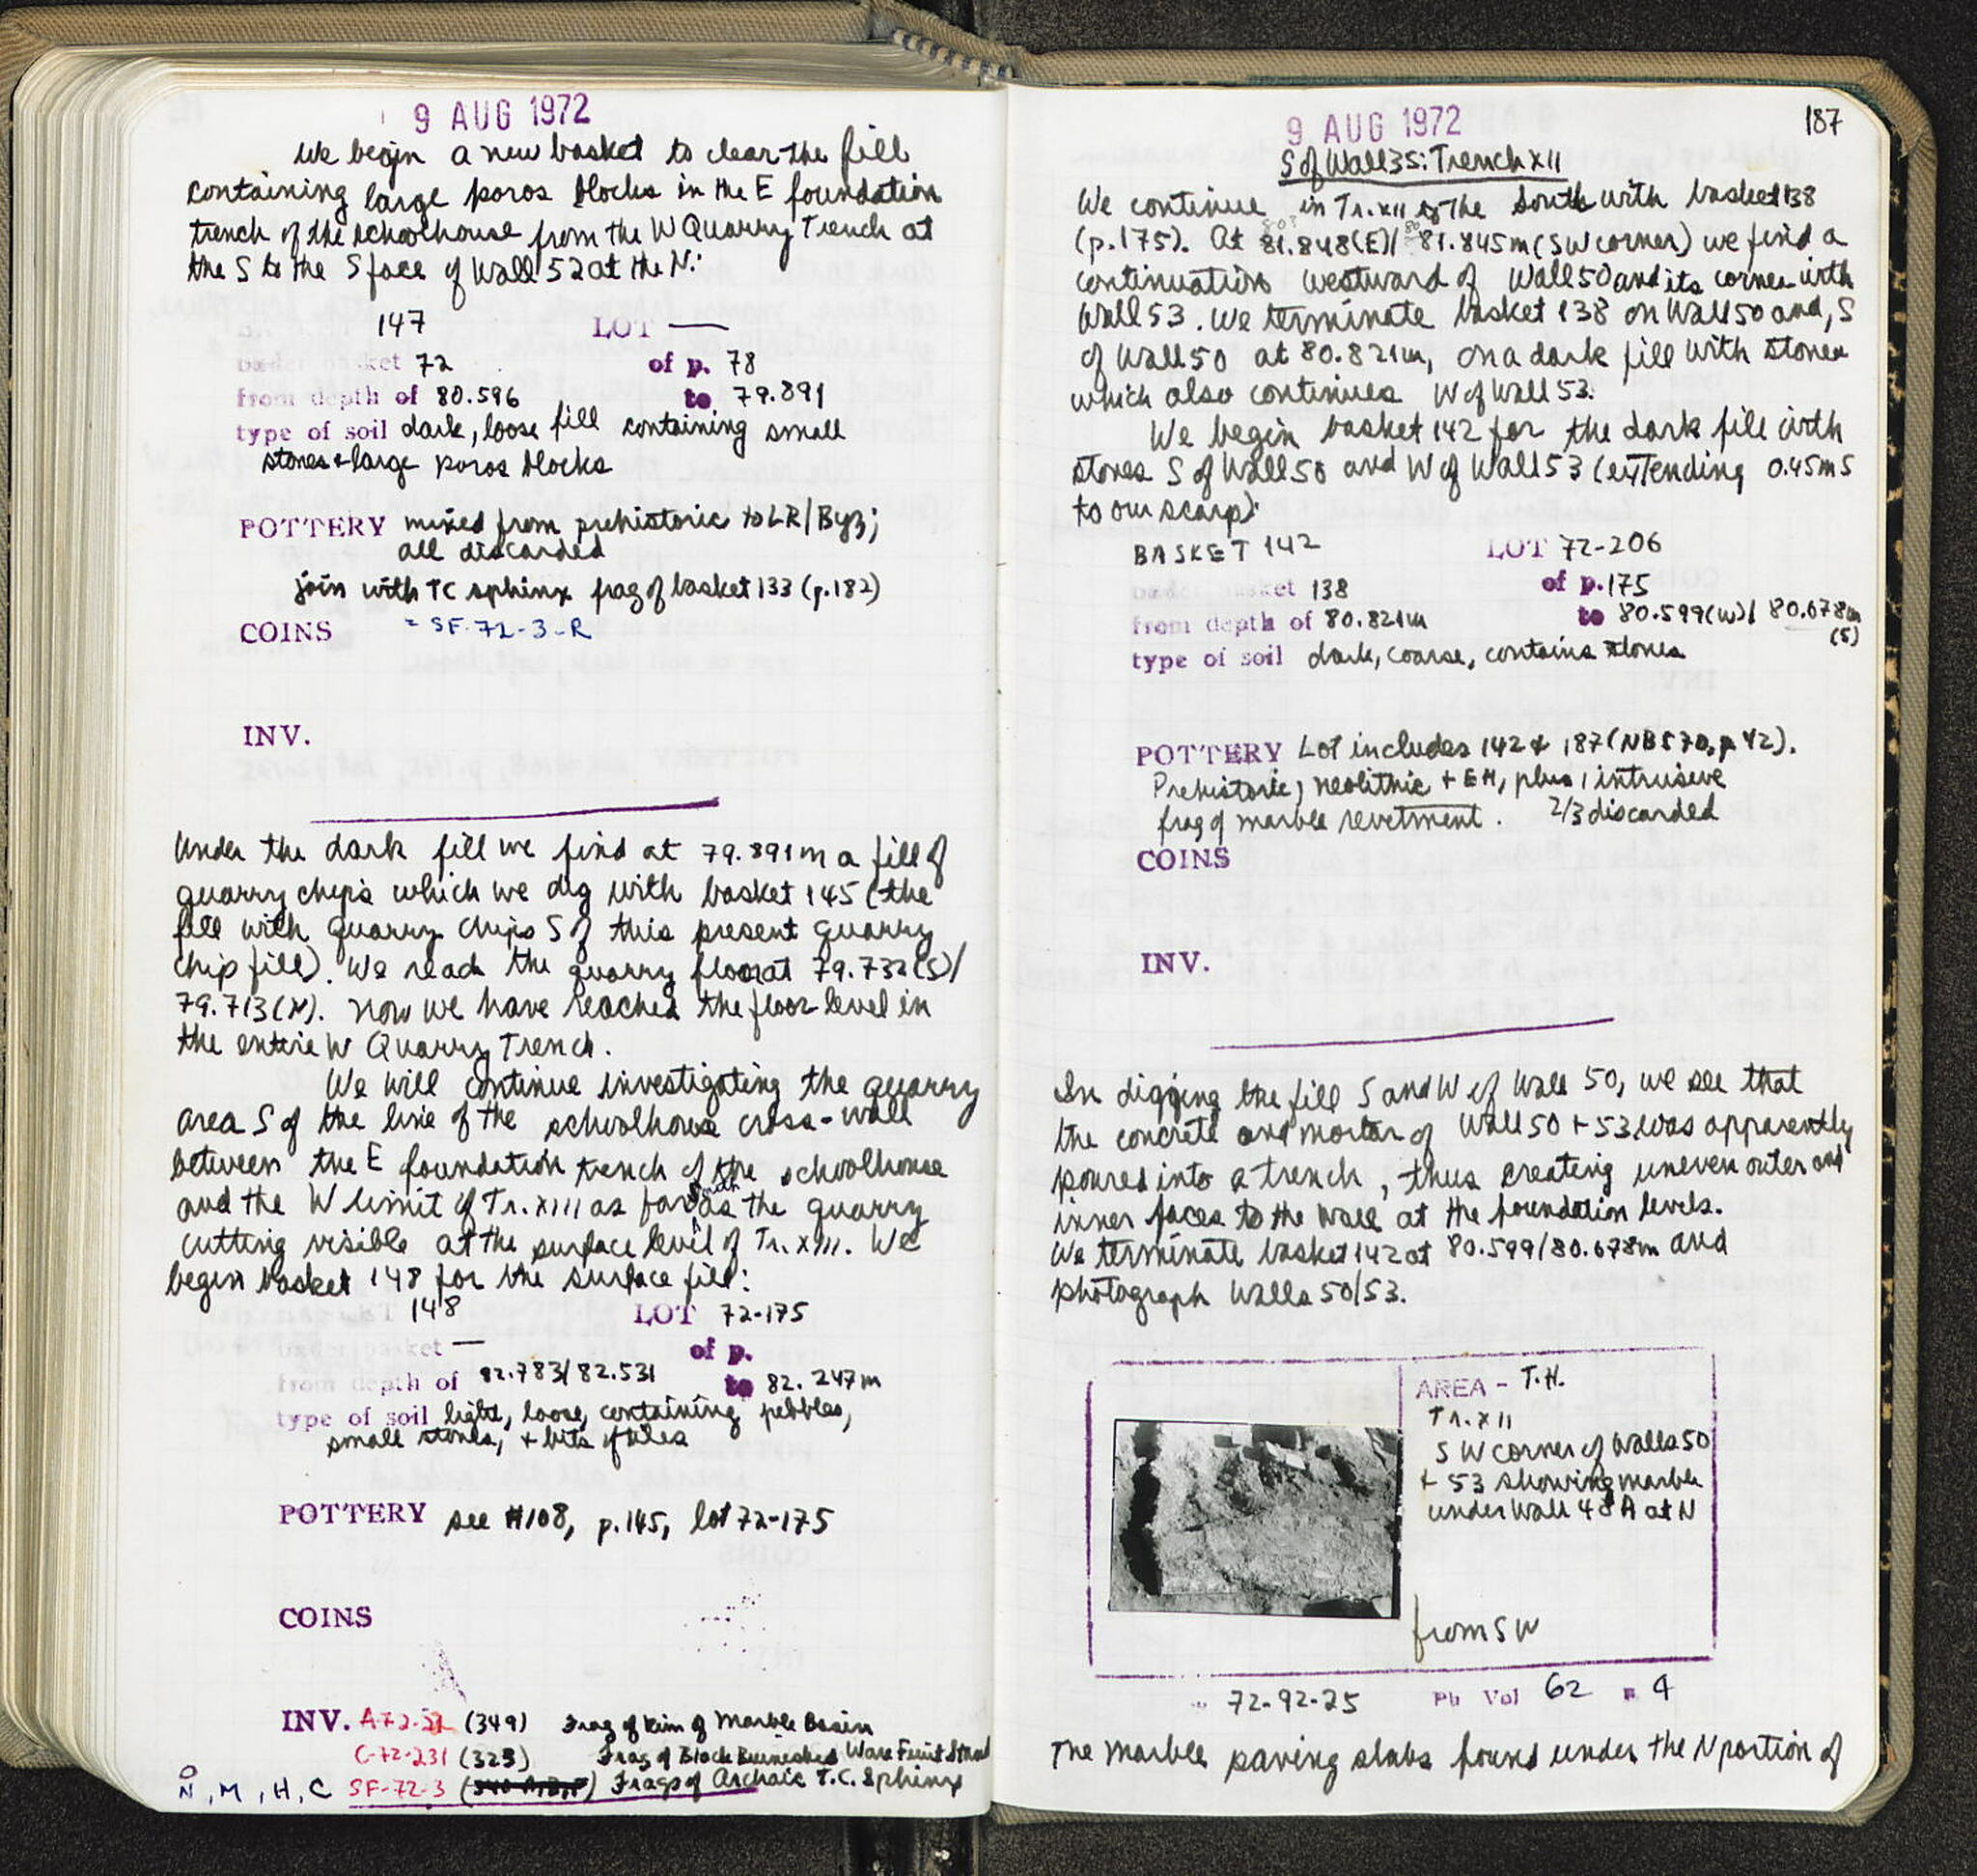 9 AUG 1972
We begin a new basket to clear the fill
containing large poros blocks in the E foundation
trench of the schoolhouse from the W Quarry Trench at
the S to the S face of Wall 52 at the N:
147 LOT —
under basket 72 of p. 78
from depth of 80.596 to 79.891
type of soil dark, loose fill containing small
stones + large poros blocks
POTTERY mixed from prehistoric to LR/Byz;
all discarded
join with TC sphinx frag of basket 133 (p.182)
COINS = SF-72-3-R
INV.
Under the dark fill we find at 79.891m a fill of
quarry chips which we dig with basket 145 (the
fill with quarry chips S of this present quarry
chip fill). We reach the quarry floor at 79.732(S)/
79.713(N). Now we have reached the floor level in
the entire W Quarry Trench.
We will continue investigating the quarry
area S of the line of the schoolhouse cross-wall
between the E foundation trench of the schoolhouse
and the W limit of Tr. XIII as far south as the quarry
cutting visible at the surface level of Tr. XIII. We
begin basket 148 for the surface fill:
148 LOT 72-175
under basket — of p.
from depth of 82.783/82.531 to 82.247m
type of soil light, loose, containing pebbles,
small stones, + bits of tiles
POTTERY see #108, p.145, lot 72-175
COINS
INV. A-72-51 (349) Frag of Rim of Marble Basin
C-72-231 (323) Frag of Black Burnished Ware Fruit Stand
N, M, H, C SF-72-3 Frags of Archaic T.C. Sphinx
9 AUG 1972 187
S of Wall 35: Trench XII
We continue in Tr. XII to the South with basket 138
(p.175). At 81.848(E)/ 81.845m (SW corner) we find a
continuation westward of Wall 50 and its corner with
Wall 53. We terminate basket 138 on Wall 50 and, S
of Wall 50 at 80.821m, on a dark fill with stones
which also continues W of Wall 53.
We begin basket 142 for the dark fill with
stones S of Wall 50 and W of Wall 53 (extending 0.45m S
to our scarp):
BASKET 142 LOT 72-206
under basket 138 of p.175
from depth of 80.821m to 80.599(W)/ 80.678m
(S)
type of soil dark, coarse, contains stones
POTTERY Lot includes 142 + 187 (NB 570, p 42).
Prehistoric; neolithic + EH, plus 1 intrusive
frag of marble revetment. 2/3 discarded
COINS
INV.
In digging the fill S and W of Wall 50, we see that
the concrete and mortar of Wall 50 + 53 was apparently
poured into a trench, thus creating uneven outer and
inner faces to the wall at the foundation levels.
We terminate basket 142 at 80.599/80.678m and
photograph Walls 50/53.
AREA - T.H.
Tr. XII
SW corner of Walls 50
+ 53 showing marble
under Wall 48A at N
from SW
72-92-25 Ph Vol 62 p 4
The marble paving slabs found under the N portion of